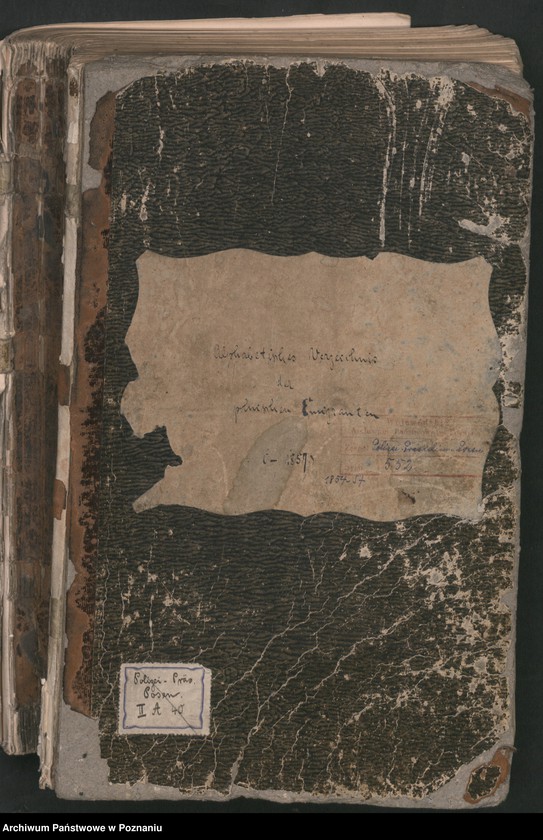 Alphabetisches Verzeichnis
der
polnischen Emigranten
(– 1857)
Polizei Präsid. in Posen
552
1834-57
Polizei-Präs
Posen
II A 40
Archiwum Państwowe w Poznaniu